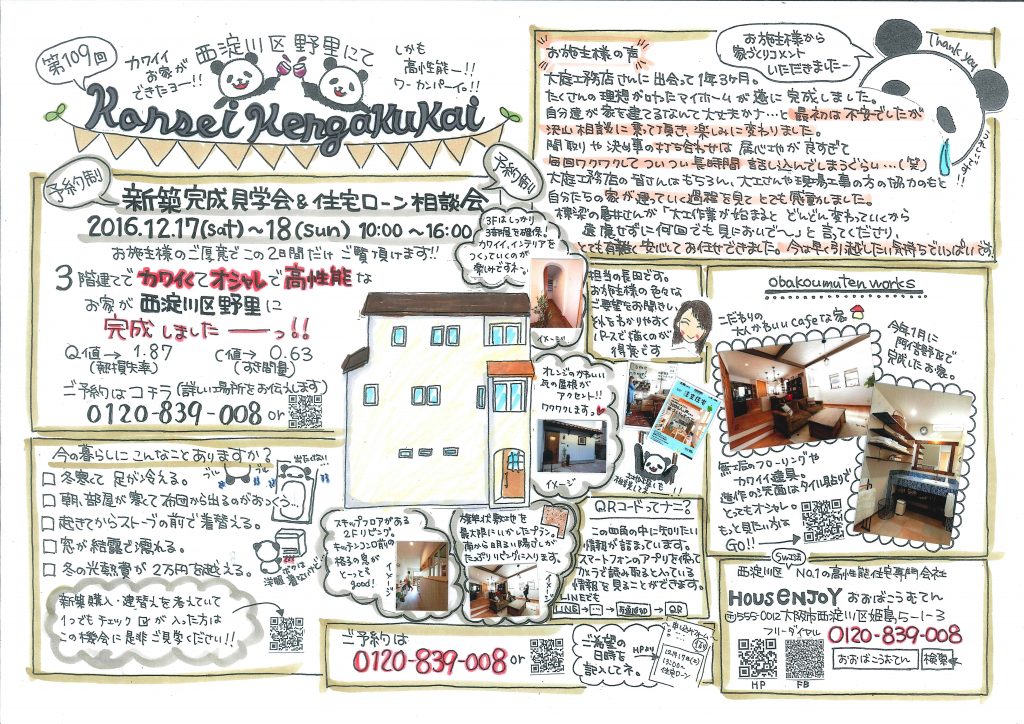 第109回
カワイイ
お家が
できたヨー!!
西淀川区野里にて
しかも
高性能ー!!
ワーカンパーイ♪!!
Kansei Kengakukai
予約制
予約制
新築完成見学会&住宅ローン相談会
2016.12.17(sat)~18(sun) 10:00~16:00
お施主様のご厚意でこの2日間だけご覧頂けます!!
3階建てでカワイくてオシャレで高性能な
お家が西淀川区野里に
完成しましたーーっ!!
Q値→1.87
(熱損失率)
C値→0.63
(すき間量)
ご予約はコチラ(詳しい場所をお伝えします)
0120-839-008 or
3Fはしっかり
3部屋を確保!
カワイイ、インテリアを
つくっていくのが
楽しみですネ。
イメージ
オレンジのかわいい
瓦の屋根が
アクセント!!
ワクワクしますっ♥
イメージ
スキップフロアがある
2Fリビング。
キッチンコンロ前の
格子の窓が
とっても
good!
イメージ
旗竿状敷地を
最大限にいかしたプラン。
南から明るい陽ざしが
たっぷりリビングに入ります。
イメージ
今の暮らしにこんなことありますか?
□ 冬寒くて足が冷える。
□ 朝、部屋が寒くて布団から出るのがおっくう…
□ 起きてからストーブの前で着替える。
□ 窓が結露で濡れる。
□ 冬の光熱費が2万円を越える。
新築購入・建替えを考えていて
1つでもチェック☑が入った方は
この機会に是非ご見学ください!!
ご予約は
0120-839-008 or
ご希望の
日時を
記入してネ。
HPより
12月17日(土)
13:00~
住宅ローン
お施主様から
家づくりコメント
いただきましたー
Thank you
お施主様の声
大庭工務店さんに出会って1年3ヶ月。
たくさんの理想が叶ったマイホームが遂に完成しました。
自分達が家を建てるなんて大丈夫かナ…と最初は不安でしたが
沢山相談に乗って頂き、楽しみに変わりました。
間取りや決め事の打ち合わせは居心地が良すぎて
毎回ワクワクしてついつい長時間話し込んでしまうぐらい…(笑)
大庭工務店の皆さんはもちろん、大工さんや現場工事の方の協力のもと
自分たちの家が建っていく過程を見てとても感動しました。
「大工作業が始まるとどんどん変わっていくから
遠慮せずに何回でも見においで~」と言ってくださり、
とても有難く安心してお任せできました。今は早く引越したい気持ちでいっぱいです。
担当の長田です。
お施主様の色々な
ご要望をお聞きし
それをわかりやすく
パースで描くのが
得意です
QRコードってナニ?
この四角の中に知りたい
情報が詰まっています。
スマートフォンのアプリを使って
カメラで読み取るとみている
情報を見ることができます。
LINEでも
LINE→…→友達追加→QR
obakoumuten works
こだわりの
大人かわいいcafeな家
今年7月に
阿倍野区で
完成したお家。
無垢のフローリングや
カワイイ建具。
造作の洗面はタイル貼りで
とってもオシャレ。
もっと見たい方は
GO!!→
SW工法
西淀川区 No.1の高性能住宅専門会社
HOUSENJOY おおばこうむてん
〒555-0012 大阪市西淀川区姫島5-1-3
フリーダイヤル 0120-839-008
おおばこうむてん 検索
HP
FB